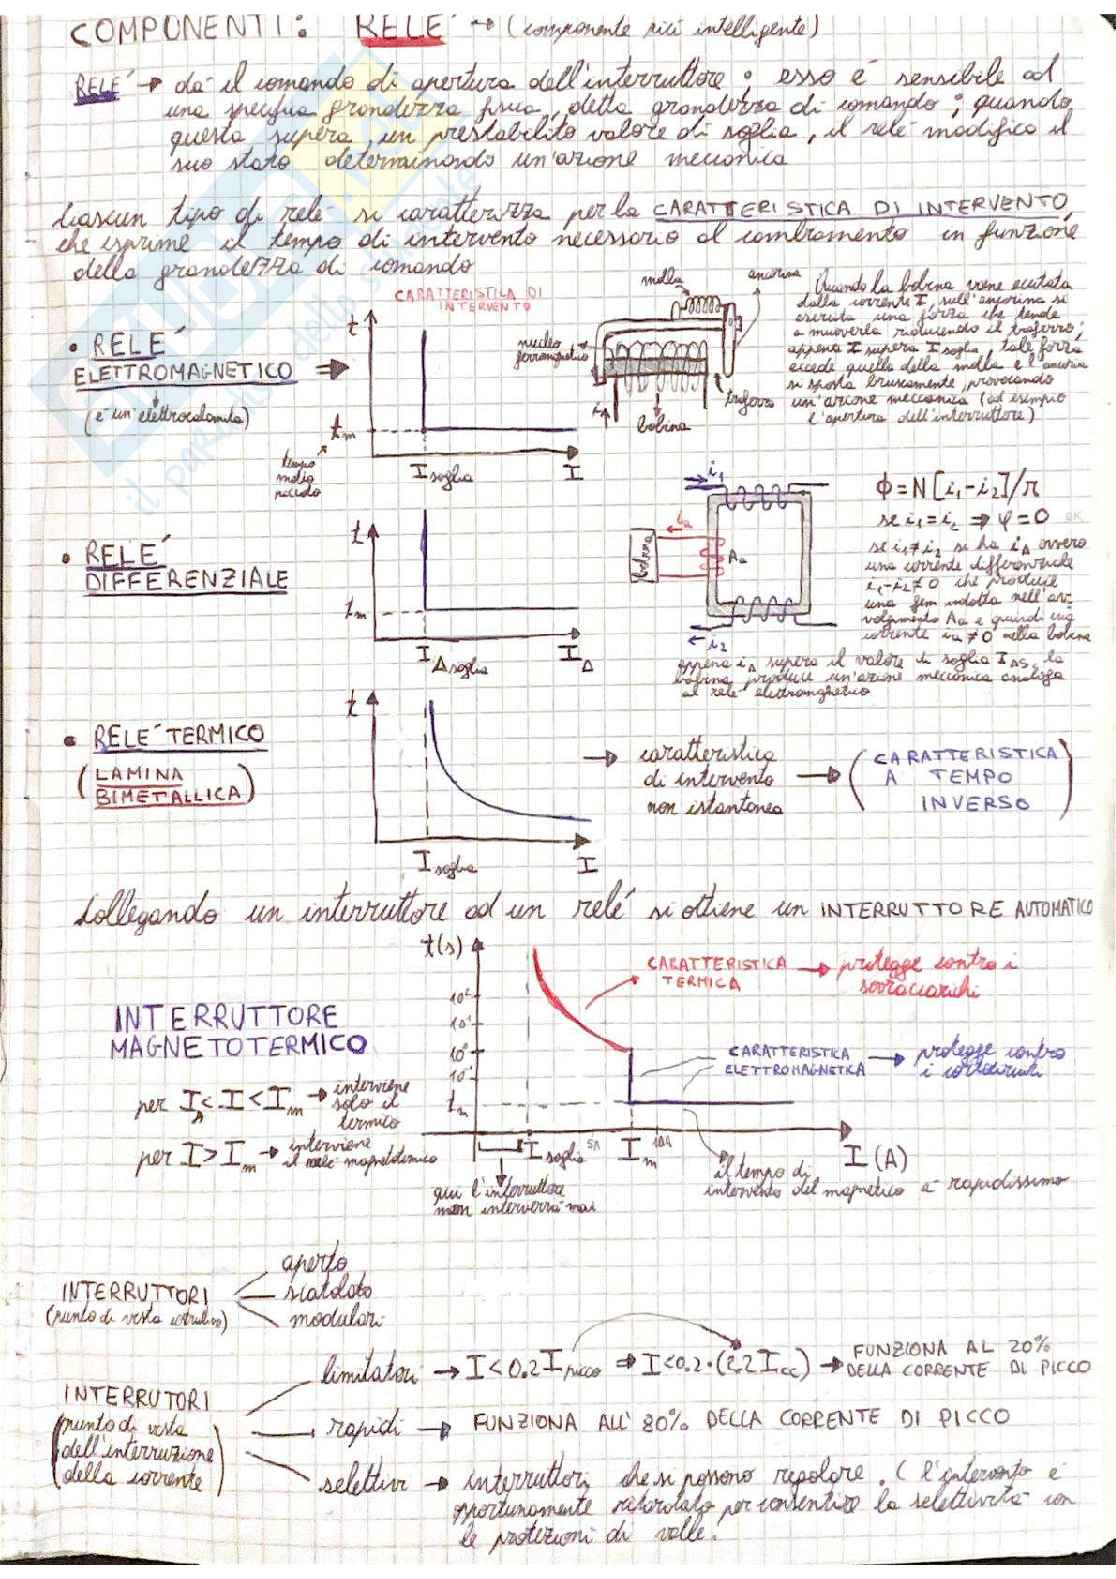 COMPONENTI: RELÉ → (componente più intelligente)
RELÉ → dà il comando di apertura dell'interruttore; esso è sensibile ad
una specifica grandezza fisica, detta grandezza di comando; quando
questa supera un prestabilito valore di soglia, il relé modifica il
suo stato determinando un'azione meccanica
Ciascun tipo di relé si caratterizza per la CARATTERISTICA DI INTERVENTO
che esprime il tempo di intervento necessario al cambiamento in funzione
della grandezza di comando
• RELÉ
ELETTROMAGNETICO ⇒
(è un'elettrocalamita)
CARATTERISTICA DI
INTERVENTO
t
tm
tempo
molto
piccolo
I soglia
I
molla
ancorina
nucleo
ferromagnetico
traferro
bobina
Quando la bobina viene eccitata
dalla corrente I, sull'ancorina si
esercita una forza che tende
a muoverla riducendo il traferro;
appena I supera I soglia, tale forza
eccede quella della molla e l'ancorina
si sposta bruscamente, provocando
un'azione meccanica (ad esempio
l'apertura dell'interruttore)
• RELÉ
DIFFERENZIALE
t
tm
I Δ soglia
IΔ
i1
ia
bobina
Aa
i2
Φ=N[i1-i2]/R
se i1=i2 ⇒ φ=0 OK
se i1≠i2 si ha iΔ ovvero
una corrente differenziale
i1-i2≠0 che produce
una fem indotta nell'av-
volgimento Aa e quindi una
corrente ia≠0 nella bobina
appena iΔ supera il valore di soglia IΔS, la
bobina produce un'azione meccanica analoga
al relé elettromagnetico
• RELÉ TERMICO
(LAMINA
BIMETALLICA)
t
I soglia
I
→ caratteristica
di intervento
non istantanea
→ (CARATTERISTICA
A TEMPO
INVERSO)
Collegando un interruttore ad un relé si ottiene un INTERRUTTORE AUTOMATICO
INTERRUTTORE
MAGNETOTERMICO
per Is < I < Im → interviene
solo il
termico
per I > Im → interviene
il relé magnetotermico
t(s)
10²
10¹
10⁰
10⁻¹
tm
I soglia 5A
Im 10A
I (A)
CARATTERISTICA
TERMICA
→ protegge contro i
sovraccarichi
CARATTERISTICA
ELETTROMAGNETICA
→ protegge contro
i cortocircuiti
qui l'interruttore
non interverrà mai
il tempo di
intervento del magnetico è rapidissimo
INTERRUTTORI
(punto di vista costruttivo)
aperto
scatolato
modulari
INTERRUTORI
(punto di vista
dell'interruzione
della corrente)
limitatori → I < 0.2 I picco ⇒ I < 0.2 · (2,2 Icc) → FUNZIONA AL 20%
DELLA CORRENTE DI PICCO
rapidi → FUNZIONA ALL' 80% DELLA CORRENTE DI PICCO
selettivi → interruttori che si possono regolare. (l'intervento è
opportunamente ritardato per consentire la selettività con
le protezioni di valle.